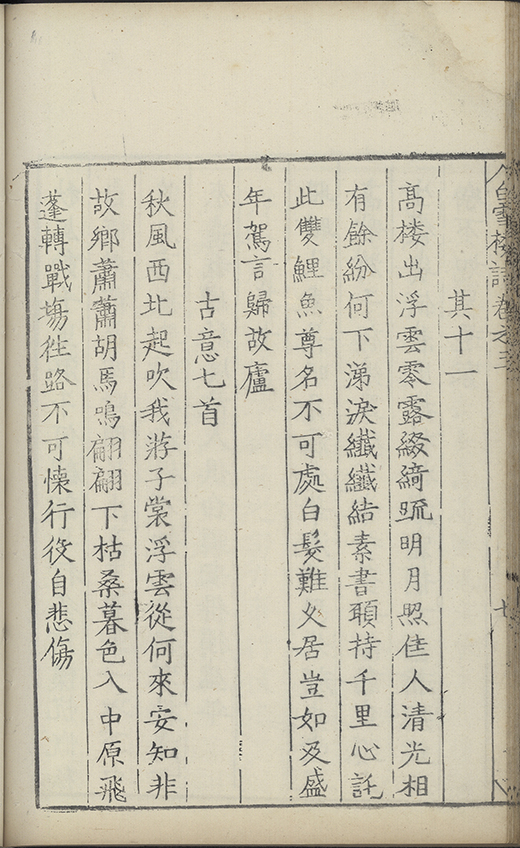 白雪樓詩卷之三
其十一
高楼出浮雲零露綴綺疏明月照佳人清光相
有餘紛何下涕淚纖纖結素書願持千里心託
此雙鯉魚尊名不可處白髮難久居豈如及盛
年駕言歸故廬
古意七首
秋風西北起吹我游子裳浮雲從何來安知非
故鄉蕭蕭胡馬鳴翩翩下枯桑暮色入中原飛
蓬轉戰場徃路不可懷行役自悲傷